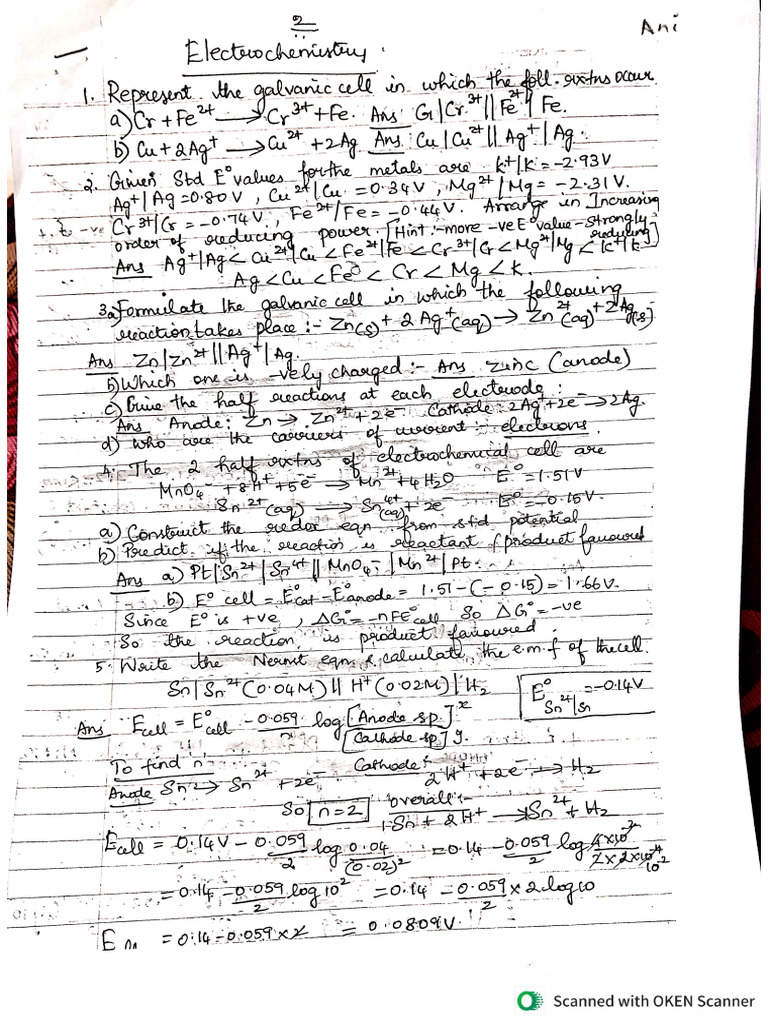 2
Ani
Electrochemistry.
1. Represent the galvanic cell in which the foll. rxtns occur.
a) Cr + Fe²⁺ → Cr³⁺ + Fe. Ans: Cr|Cr³⁺||Fe²⁺|Fe.
b) Cu + 2Ag⁺ → Cu²⁺ + 2Ag Ans: Cu|Cu²⁺||Ag⁺|Ag.
2. Given Std E° values for the metals are K⁺|K = -2.93V
Ag⁺|Ag = 0.80V, Cu²⁺|Cu = 0.34V, Mg²⁺/Mg = -2.31V.
Cr³⁺/Cr = -0.74V, Fe²⁺/Fe = -0.44V. Arrange in Increasing
order of reducing power. [Hint:- more -ve E° value - strongly reducing]
Ans Ag⁺|Ag < Cu²⁺|Cu < Fe²⁺|Fe < Cr³⁺|Cr < Mg²⁺|Mg < K⁺|K
Ag < Cu < Fe < Cr < Mg < K.
3.a) Formulate the galvanic cell in which the following
reaction takes place:- Zn(s) + 2Ag⁺(aq) → Zn²⁺(aq) + 2Ag(s)
Ans Zn|Zn²⁺||Ag⁺|Ag.
b) Which one is -vely charged:- Ans Zinc (anode)
c) Give the half reactions at each electrode:
Ans Anode: Zn → Zn²⁺ + 2e⁻ Cathode: 2Ag⁺ + 2e⁻ → 2Ag.
d) Who are the carriers of current: electrons.
4. The 2 half rxtns of electrochemical cell are
MnO₄⁻ + 8H⁺ + 5e⁻ → Mn²⁺ + 4H₂O E° = 1.51V
Sn²⁺(aq) → Sn⁴⁺(aq) + 2e⁻ E° = -0.15V.
a) Construct the redox eqn from std potential
b) Predict if the reaction is reactant/product favoured
Ans a) Pt|Sn²⁺|Sn⁴⁺||MnO₄⁻|Mn²⁺|Pt.
b) E°cell = E°cat - E°anode = 1.51 - (-0.15) = 1.66V.
Since E° is +ve, ΔG° = -nFE°cell So ΔG° = -ve
So the reaction is product favoured.
5. Write the Nernst eqn & calculate the e.m.f of the cell.
Sn|Sn²⁺(0.04M)||H⁺(0.02M)|H₂ E°Sn²⁺|Sn = -0.14V
Ans Ecell = E°cell - 0.059/n log [Anode sp.]ˣ/[Cathode sp.]ʸ
To find n Cathode:
Anode Sn → Sn²⁺ + 2e⁻ 2H⁺ + 2e⁻ → H₂
So n = 2 overall:- 1Sn + 2H⁺ → Sn²⁺ + H₂
Ecell = 0.14V - 0.059/2 log 0.04/(0.02)² = 0.14 - 0.059/2 log 4×10⁻²/2×2×10⁻⁴ 10⁻²
= 0.14 - 0.059/2 log 10² = 0.14 - 0.059/2 × 2 log 10
= 0.14 - 0.059 × 2 = 0.0809V.
Scanned with OKEN Scanner